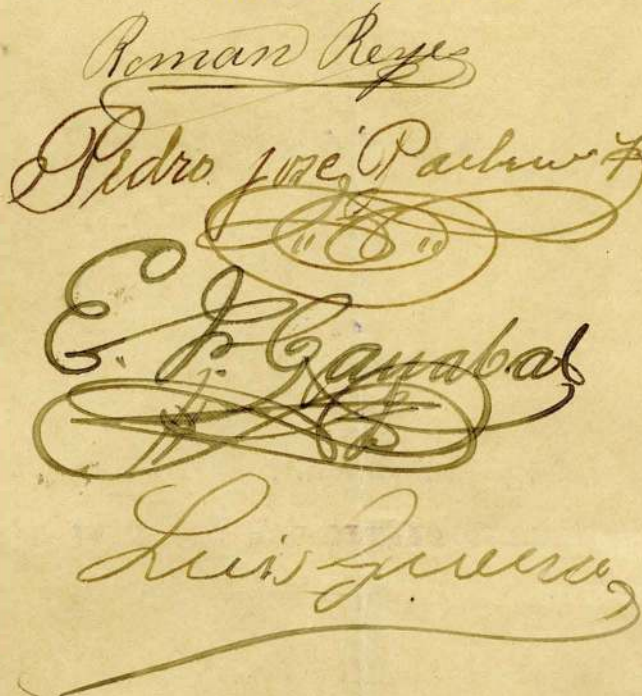 Roman Reyes
Pedro José Pacheco
E. J. Gayabal
Luis Guerra